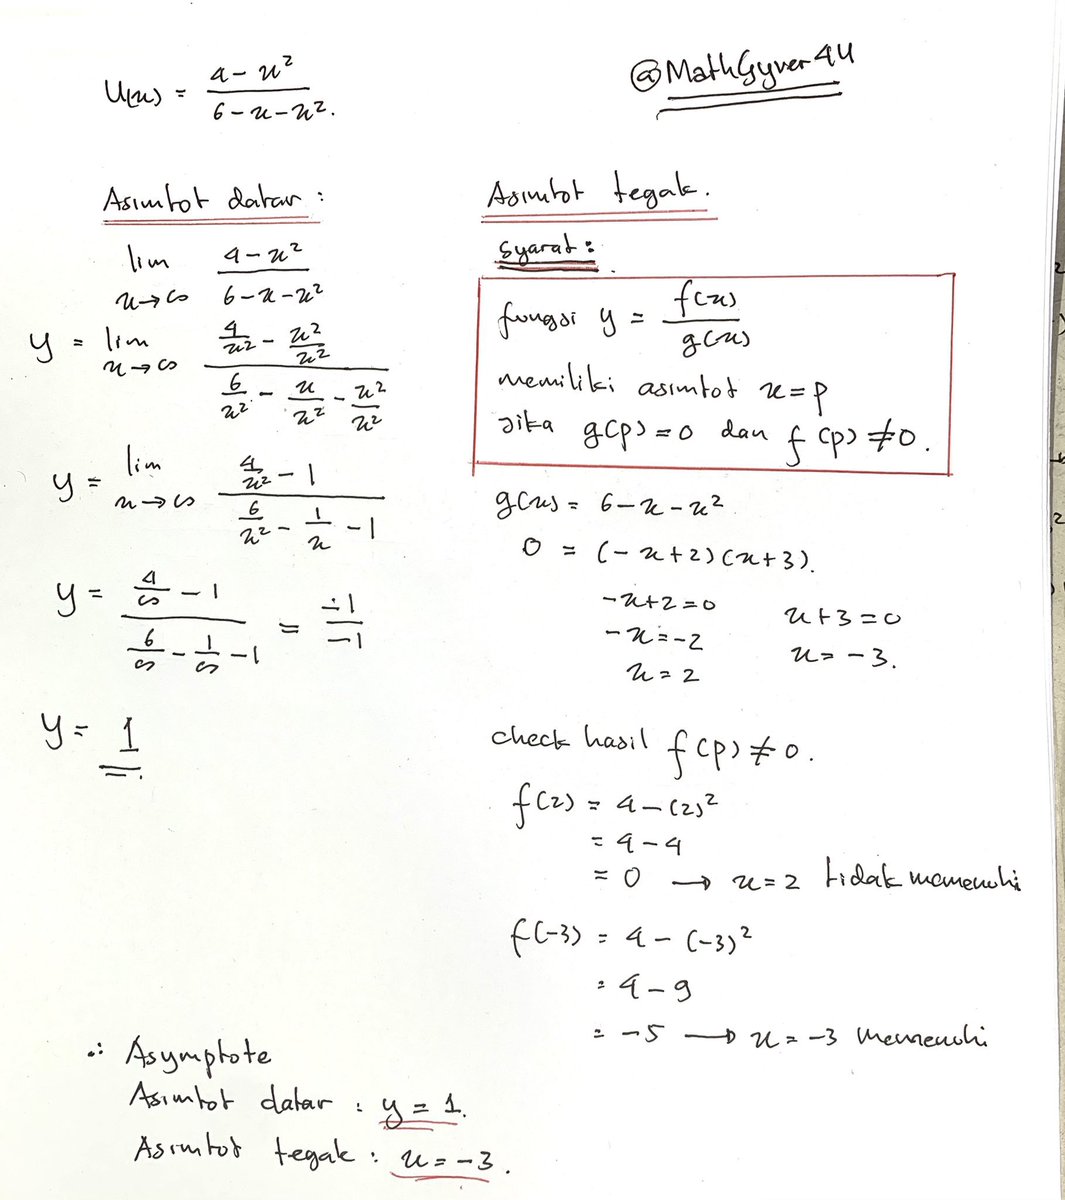 U(x) = (4 - x²)/(6 - x - x²).
@MathGyver44
Asimtot datar :
lim x→∞ (4 - x²)/(6 - x - x²)
y = lim x→∞ (4/x² - x²/x²)/(6/x² - x/x² - x²/x²)
y = lim x→∞ (4/x² - 1)/(6/x² - 1/x - 1)
y = (4/∞ - 1)/(6/∞ - 1/∞ - 1) = -1/-1
y = 1
Asimtot tegak.
Syarat :
fungsi y = f(x)/g(x)
memiliki asimtot x = p
jika g(p) = 0 dan f(p) ≠ 0.
g(x) = 6 - x - x²
0 = (-x+2)(x+3).
-x+2=0 x+3=0
-x=-2 x=-3.
x=2
check hasil f(p) ≠ 0.
f(2) = 4 - (2)²
= 4 - 4
= 0 → x = 2 tidak memenuhi
f(-3) = 4 - (-3)²
= 4 - 9
= -5 → x = -3 memenuhi
∴ Asymptote
Asimtot datar : y = 1.
Asimtot tegak : x = -3.